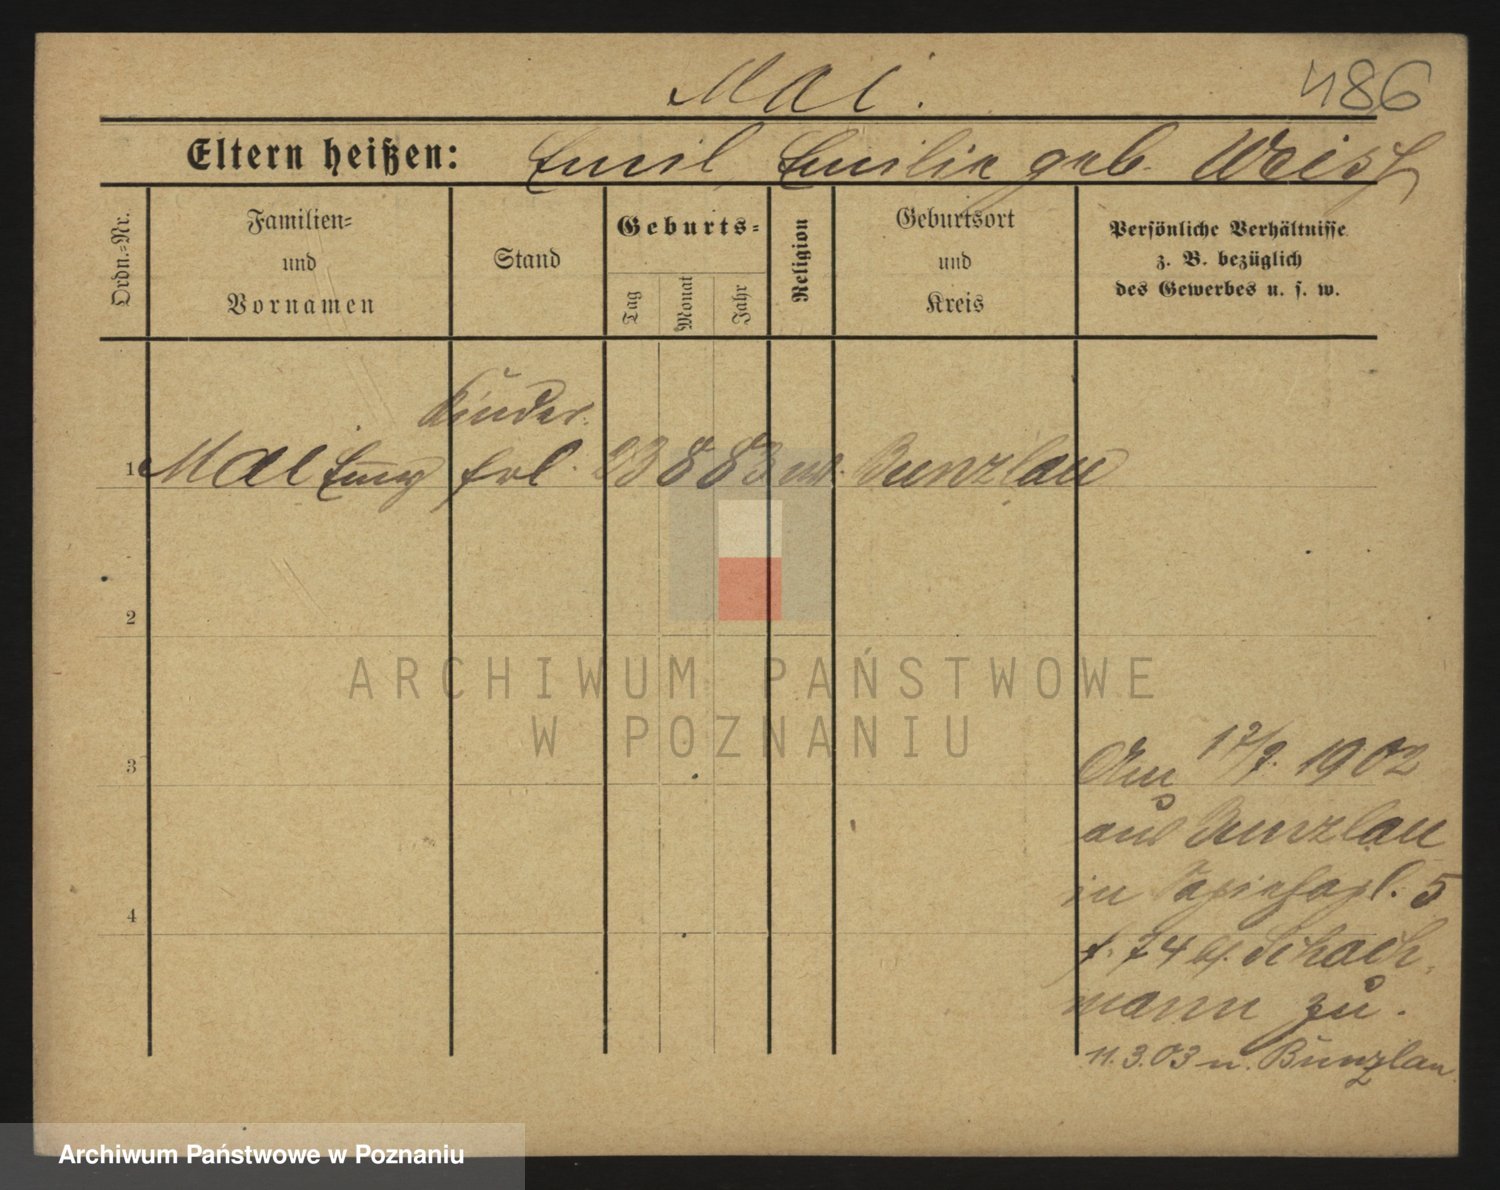 Mai.
486
Eltern heißen: Emil, Emilie geb. Weiss
Ordn.=Nr.
Familien=
und
Vornamen
Stand
Geburts=
Tag
Monat
Jahr
Religion
Geburtsort
und
Kreis
Persönliche Verhältnisse
z. B. bezüglich
des Gewerbes u. s. w.
Kinder
1 Mai frl. 23 8 83 Bunzlau
2
3
4
Am 1902
aus Bunzlau
in 5
Schach
mann zu.
11.3.03 n. Bunzlau
ARCHIWUM PAŃSTWOWE
W POZNANIU
Archiwum Państwowe w Poznaniu